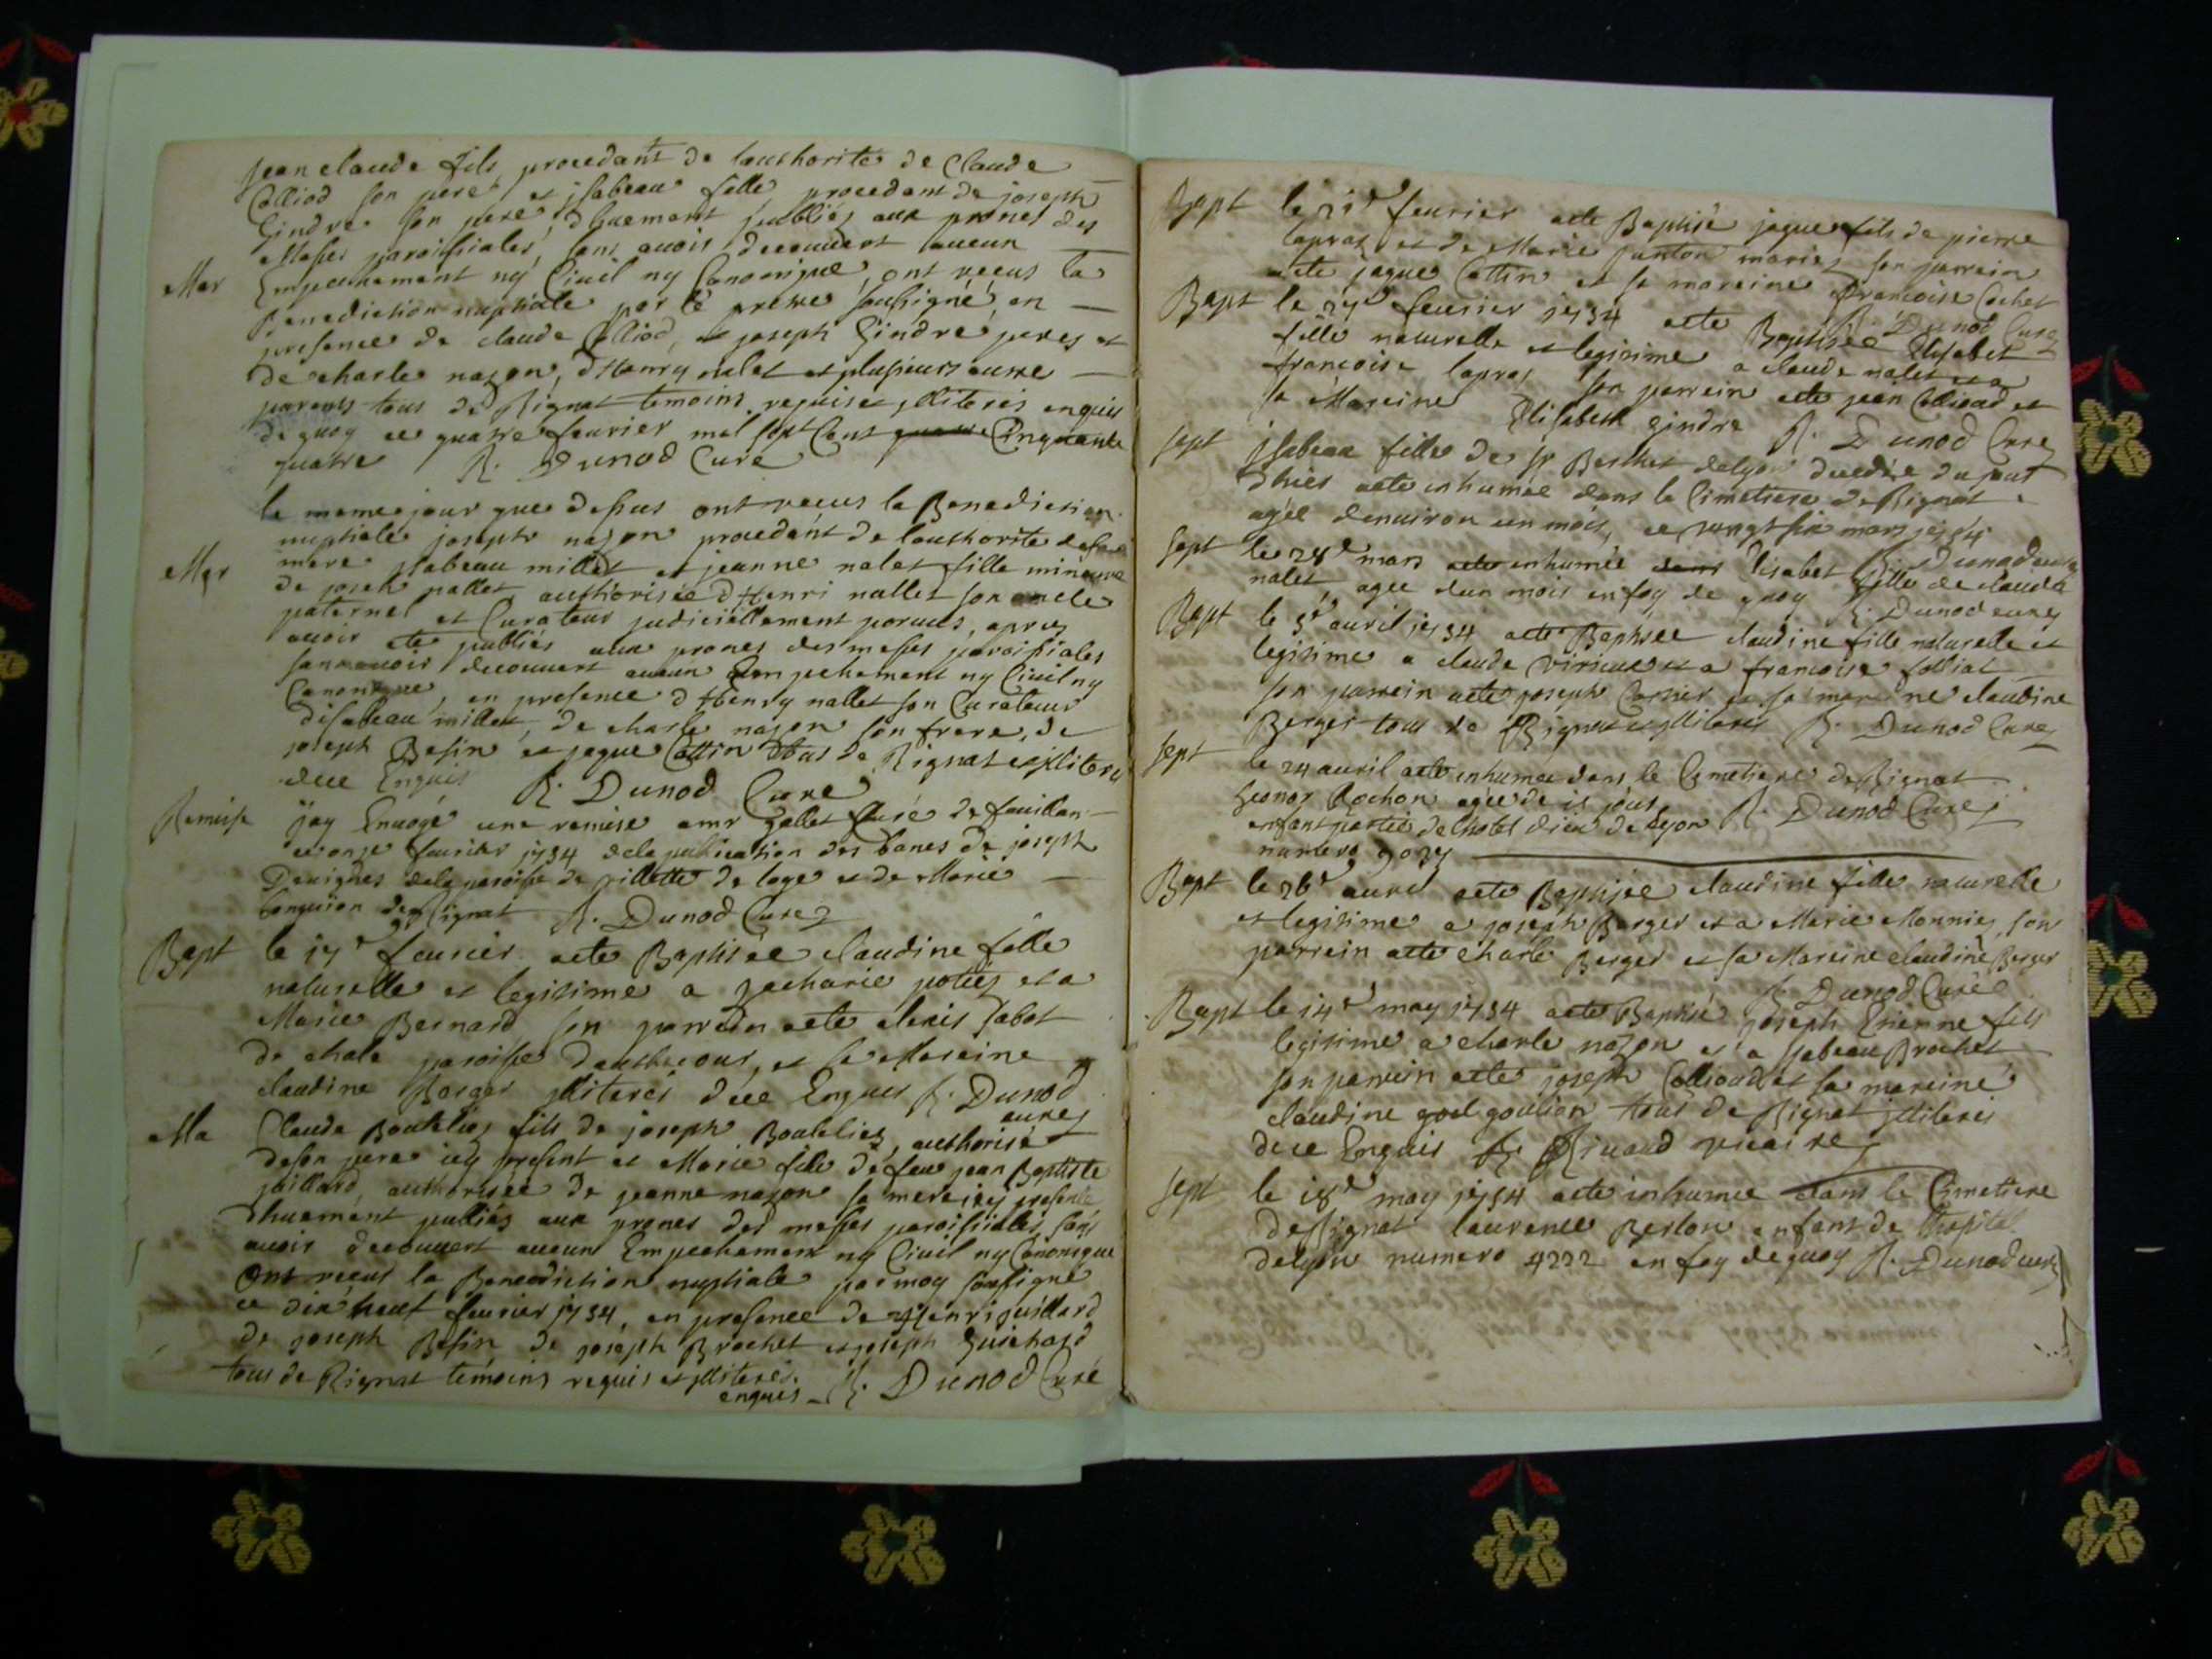 Jean claude fils procedant de lauthorité de Claude
Colliod son pere et jsabeau fille procedant de joseph
Gindre son pere, dhuement publiés aux prones des
Messes paroissiales, sans auoir decouuert aucun
Mar Empechement ny Ciuil ny Canonique, ont receus la
Benediction nuptiale par le pretre soussigné, en
presence de claude Colliod, et joseph Gindre peres et
de charle nazon, d'Henry nalet et plusieurs autre
parents tous de Rignat temoins requis et jlliterés enquis
de quoy ce quatre feurier mil sept Cent Cinquante
quatre R. Dunod Curé
le meme jour que dessus ont receus la Benediction
nuptiale joseph nazon procedant de lauthorité de sa
Mar mere jsabeau millet et jeanne nalet fille mineure
de joseph nallet, authorisée d'Henri nallet son oncle
paternel et Curateur judiciellement poruus, apres
auoir ete publiés aux prones des messes paroissiales
sans auoir decouuert aucun Empechement ny Ciuil ny
Canonique, en presence d'Henry nallet son Curateur
disabeau millet, de charle nazon son frere, de
joseph Besin et jaque Cottin tous de Rignat et jlliterés
de ce Enquis R. Dunod Curé
Remise jay Enuoyé une remise a mr gallet Curé de
ce onze feurier 1754 de la publication des bancs de joseph
de la paroisse de Villette de loye et de Marie
de Rignat R. Dunod Curé
Bapt le 17e feurier a ete Baptisée claudine fille
naturelle et legitime a zacharie potiez et a
Marie Bernard son parrein a ete Sabot
de chale paroisse et sa Mareine
claudine Berger jlliterés de ce Enquis R. Dunod
curé
Ma Claude Bouteliez fils de joseph Bouteliez, authorisé
de son pere icy present et Marie fille de feu jean Baptiste
juillard, authorisée de jeanne nazon sa mere icy presente
dhuement publiés aux prones des messes paroissiales, sans
auoir decouuert aucun Empechement ny Ciuil ny Canonique
ont receus la Benediction nuptiale par moy soussigné
ce dix huit feurier 1754, en presence de Henri juillard
de joseph Besin de joseph Brochet et joseph Guichard
tous de Rignat temoins requis et jlliterés
enquis R. Dunod Curé
Bapt le 21e feurier a ete Baptisé jaque fils de pierre
lapras et de Marie janton mariez son parrein
a ete jaque Cottin et sa mareine francoise Cochet
R. Dunod Curé
Bapt le 27e feurier 1754 a ete Baptisée Elisabet
fille naturelle et legitime a claude nalet et a
francoise lapras son parrein a ete jean Colliaud et
sa Mareine Elisabeth gindre R. Dunod Curé
sept jsabeau fille de Sr Berthet de lyon decedée du jour
d'hier a ete inhumée dans le Cimetiere de Rignat
agée denuiron un mois, ce vingt six mars 1754
R. Dunod curé
sept le 28e mars a ete inhumée Elisabet fille de claude
nalet agée dun mois en foy de quoy R. Dunod curé
Bapt le 5e auril 1754 a ete Baptisée claudine fille naturelle et
legitime a claude et a francoise
son parrein a ete joseph Carrier et sa mareine claudine
Berger tous de Rignat et jlliterés R. Dunod Curé
sept le 24 auril a ete inhumée dans le Cimetiere de Rignat
Rochon agée de 15 jours
enfant partie de lhotel dieu de lyon R. Dunod Curé
numero 9027
Bapt le 26e auril a ete Baptisée claudine fille naturelle
et legitime a joseph Berger et a Marie Monnier, son
parrein a ete charle Berger et sa Mareine claudine Berger
R. Dunod Curé
Bapt le 14e may 1754 a ete Baptisé joseph Etienne fils
legitime a charle nazon et a jsabeau Brochet
son parrein a ete joseph Colliaud et sa mareine
claudine goulion tous de Rignat jlliterés
de ce Enquis R. Rivaud vicaire
sept le 18e may 1754 a ete inhumée dans le Cimetiere
de Rignat laurence Berlon enfant de lhopital
de lyon numero 4222 en foy de quoy R. Dunod curé